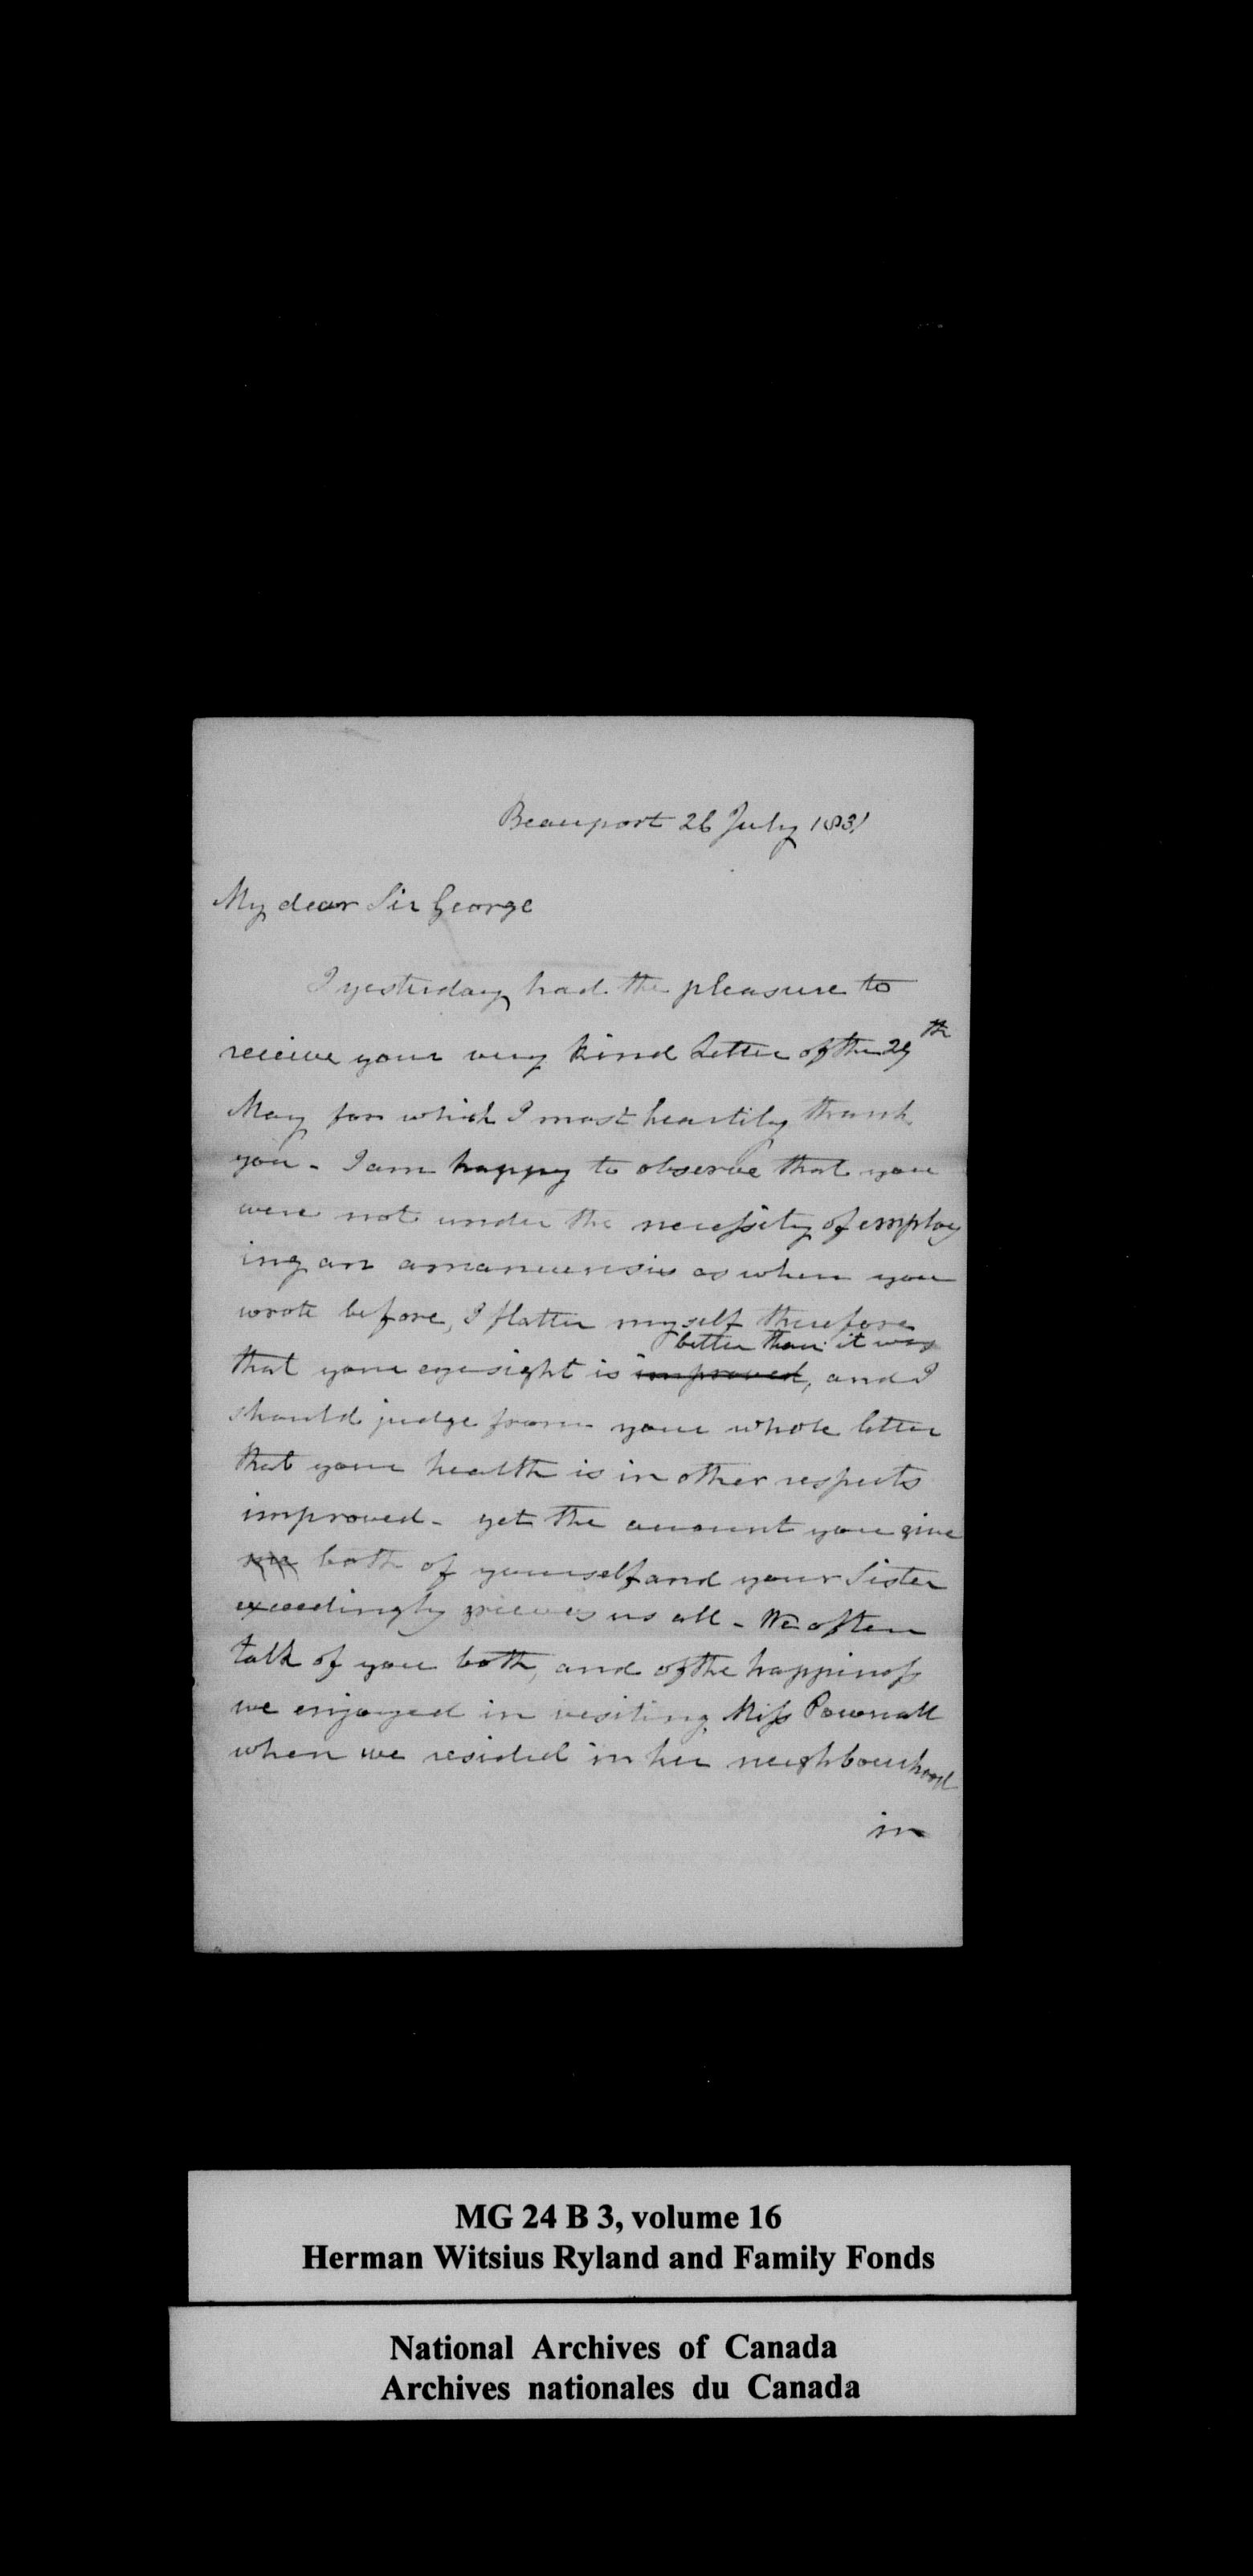 Beauport 26 July 1831
My dear Sir George
I yesterday had the pleasure to
receive your very kind Letter of the 29th
May for which I most heartily thank
you - I am happy to observe that you
were not under the necessity of employ
ing an amanuensis as when you
wrote before, I flatter myself therefore
better than it was
that your eyesight is improved, and I
should judge from your whole letter
that your health is in other respects
improved - yet the account you give
me both of yourself and your Sister
exceedingly grieves us all - We often
talk of you both, and of the happiness
we enjoyed in visiting Miss Pownall
when we resided in her neighbourhood
in
MG 24 B 3, volume 16
Herman Witsius Ryland and Family Fonds
National Archives of Canada
Archives nationales du Canada